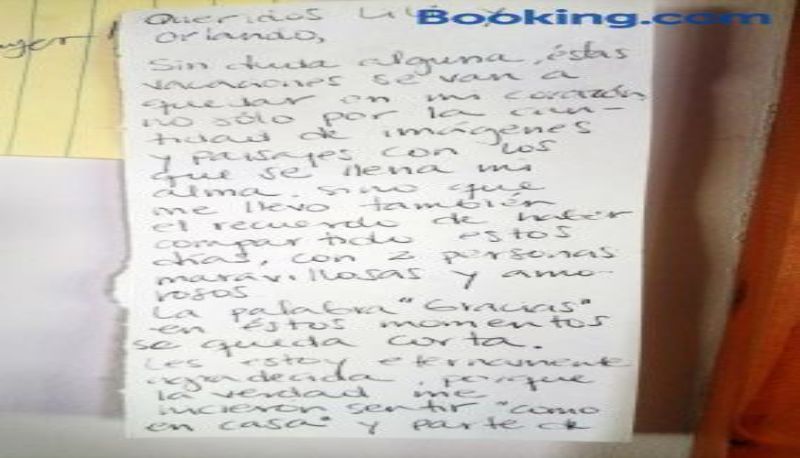 Booking.com
Queridos Lili y
Orlando,
Sin duda alguna, éstas
vacaciones se van a
quedar en mi corazón
no sólo por la can-
tidad de imágenes
y paisajes con los
que se llena mi
alma, sino que
me llevo también
el recuerdo de haber
compartido estos
días, con 2 personas
maravillosas y amo-
rosos
La palabra "Gracias"
en éstos momentos
se queda corta.
Les estoy eternamente
agradecida, porque
la verdad me
hicieron sentir "como
en casa" y parte de